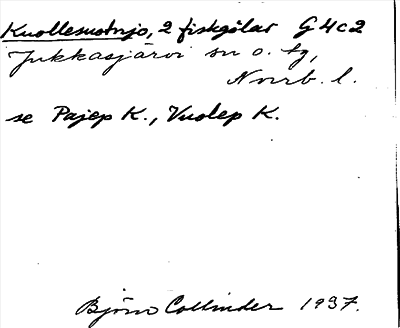 Kuollesuotnjo, 2 fiskgölar G4c2
Jukkasjärvi sn o. tg,
Norrb. l.
se Pajep K., Vuolep K.
Björn Collinder 1937.